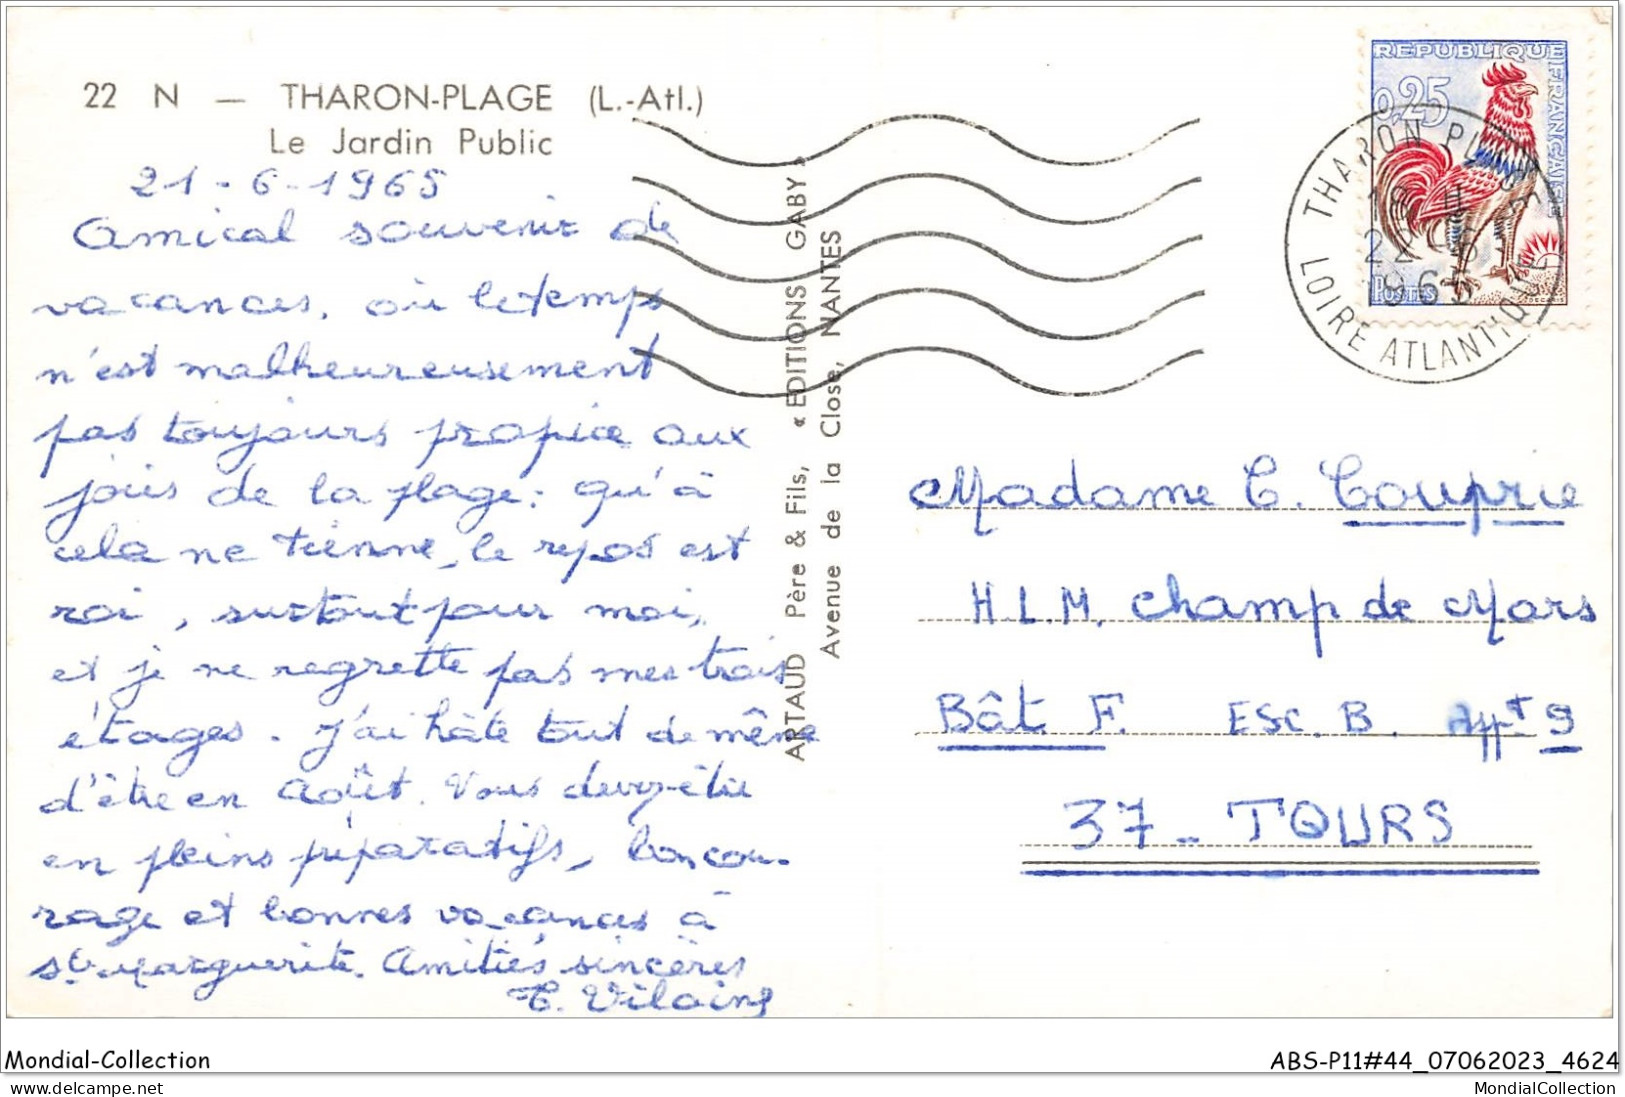 22 N — THARON-PLAGE (L.-Atl.)
Le Jardin Public
21-6-1965
Amical souvenir de
vacances, où le temps
n'est malheureusement
pas toujours propice aux
joies de la plage : qu'à
cela ne tienne, le repos est
roi, surtout pour moi,
et je ne regrette pas mes trois
étages. J'ai hâte tout de même
d'être en Août. Vous devez être
en pleins préparatifs, bon cou-
rage et bonnes vacances à
Ste Marguerite. Amitiés sincères
ARTAUD Père & Fils, « EDITIONS GABY »
Avenue de la Close, NANTES
REPUBLIQUE FRANÇAISE
0,25
POSTES
DECARIS
THARON PLAGE
18 H
22-6
1965
LOIRE ATLANTIQUE
Madame C. Couprie
H.L.M. Champ de Mars
Bât F. ESC. B. Appt 9
37 - TOURS
Mondial-Collection
ABS-P11#44_07062023_4624
delcampe.net
MondialCollection